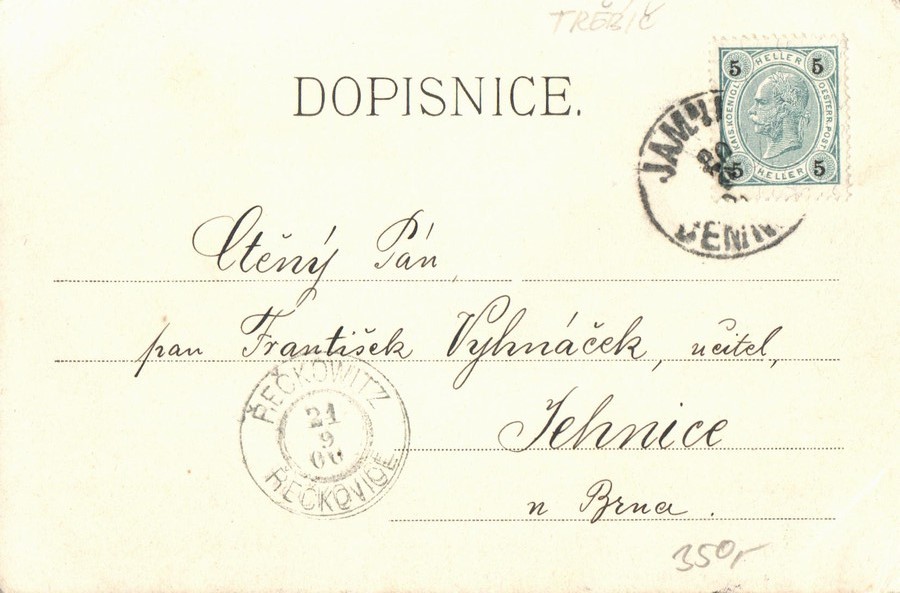 TŘEBÍČ
DOPISNICE.
5 HELLER 5
KAIS. KOENIGL. OESTERR. POST
5 HELLER 5
Ctěný Pán,
pan František Vyhnáček, učitel,
Jehnice
n Brna.
ŘEČKOWITZ
21
9
00
ŘEČKOVICE
350,-